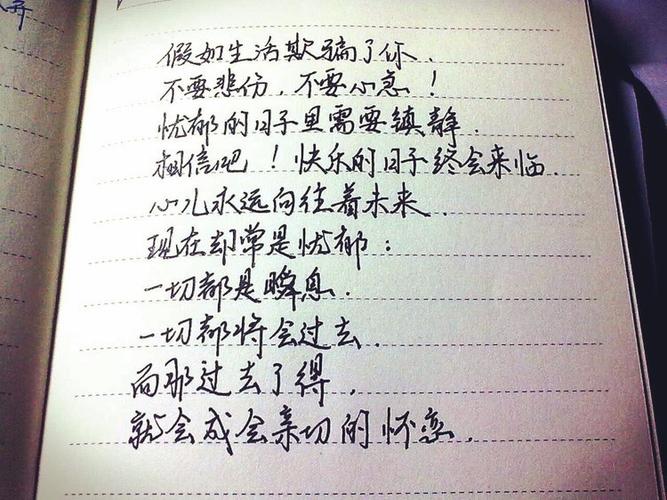 假如生活欺骗了你.
不要悲伤，不要心急！
忧郁的日子里需要镇静.
相信吧！快乐的日子终会来临.
心儿永远向往着未来.
现在却常是忧郁：
一切都是瞬息.
一切都将会过去.
而那过去了得，
就会成会亲切的怀恋.